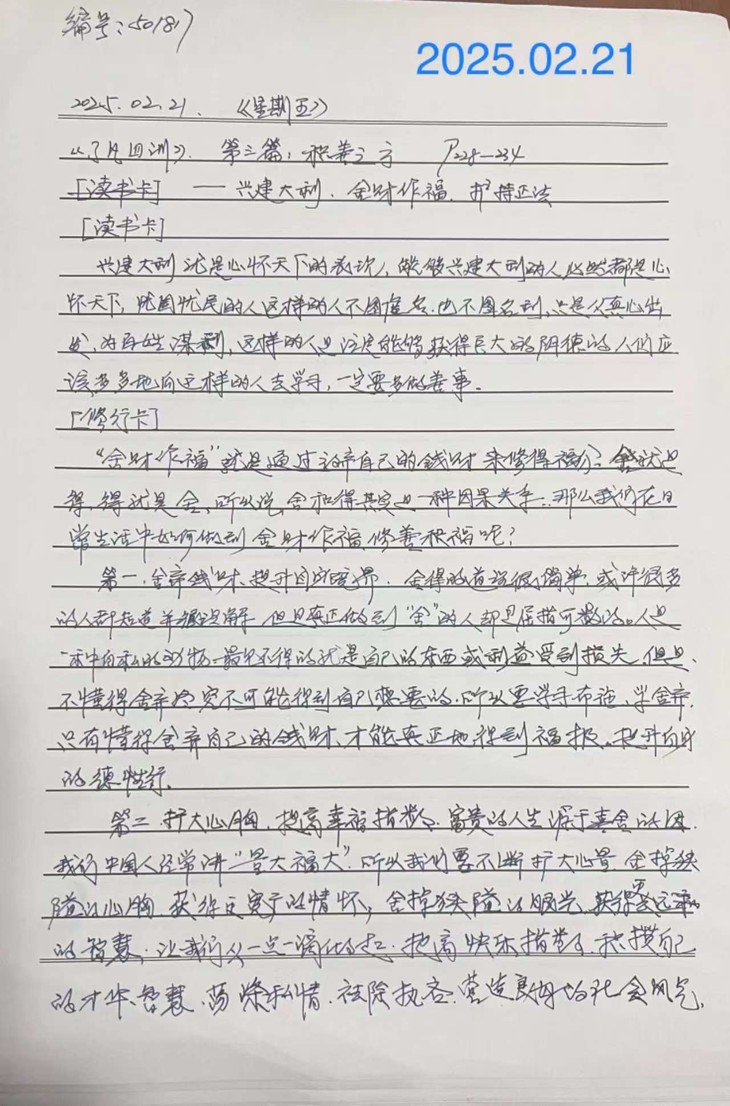 编号：50187
2025.02.21
2025.02.21. 《星期五》
《了凡四训》. 第三篇：积善之方 P228—234
[读书卡] —— 兴建大利. 舍财作福. 护持正法
[读书卡]
兴建大利就是心怀天下的表次, 能够兴建大利的人必然都是心
怀天下, 忧国忧民的人这样的人不图虚名. 也不图名利, 只是从真心出
发, 为百姓谋利, 这样的人是注定能够获得巨大的阴德的人们应
该多多地向这样的人去学习, 一定要多做善事。
[修行卡]
“舍财作福”就是通过the弃自己的钱财来修得福分? 舍就是
得, 得就是舍, 所以说, 舍和得其实是一种因果关系. 那么我们在日
常生活中如何做到舍财作福修善积福呢?
第一. 舍弃钱财, 提升自我境界. 舍得的道理很简单, 或许很多
的人都知道并能理解, 但是真正做到“舍”的人却是屈指可数的。人是
一种自私的动物, 最见不得的就是自己的东西或利益受到损失, 但是,
不懂得舍弃终究不可能得到自己想要的. 所以要学习布施, 学舍弃.
只有懂得舍弃自己的钱财, 才能真正地得到福报, 提升自身
的德性行.
第二 扩大心胸, 提高幸福指数. 富贵的人生源于喜舍的因.
我们中国人经常讲“量大福大”. 所以我们要不断扩大心量 舍掉狭
隘的心胸, 获得宽广的情怀; 舍掉狭隘的眼光, 获得更元
的智慧, 让我们从一点一滴做起. 提高快乐指数 积攒自己
的才华、智慧, 荡涤私情. 祛除执吝. 营造良好的社会风气,